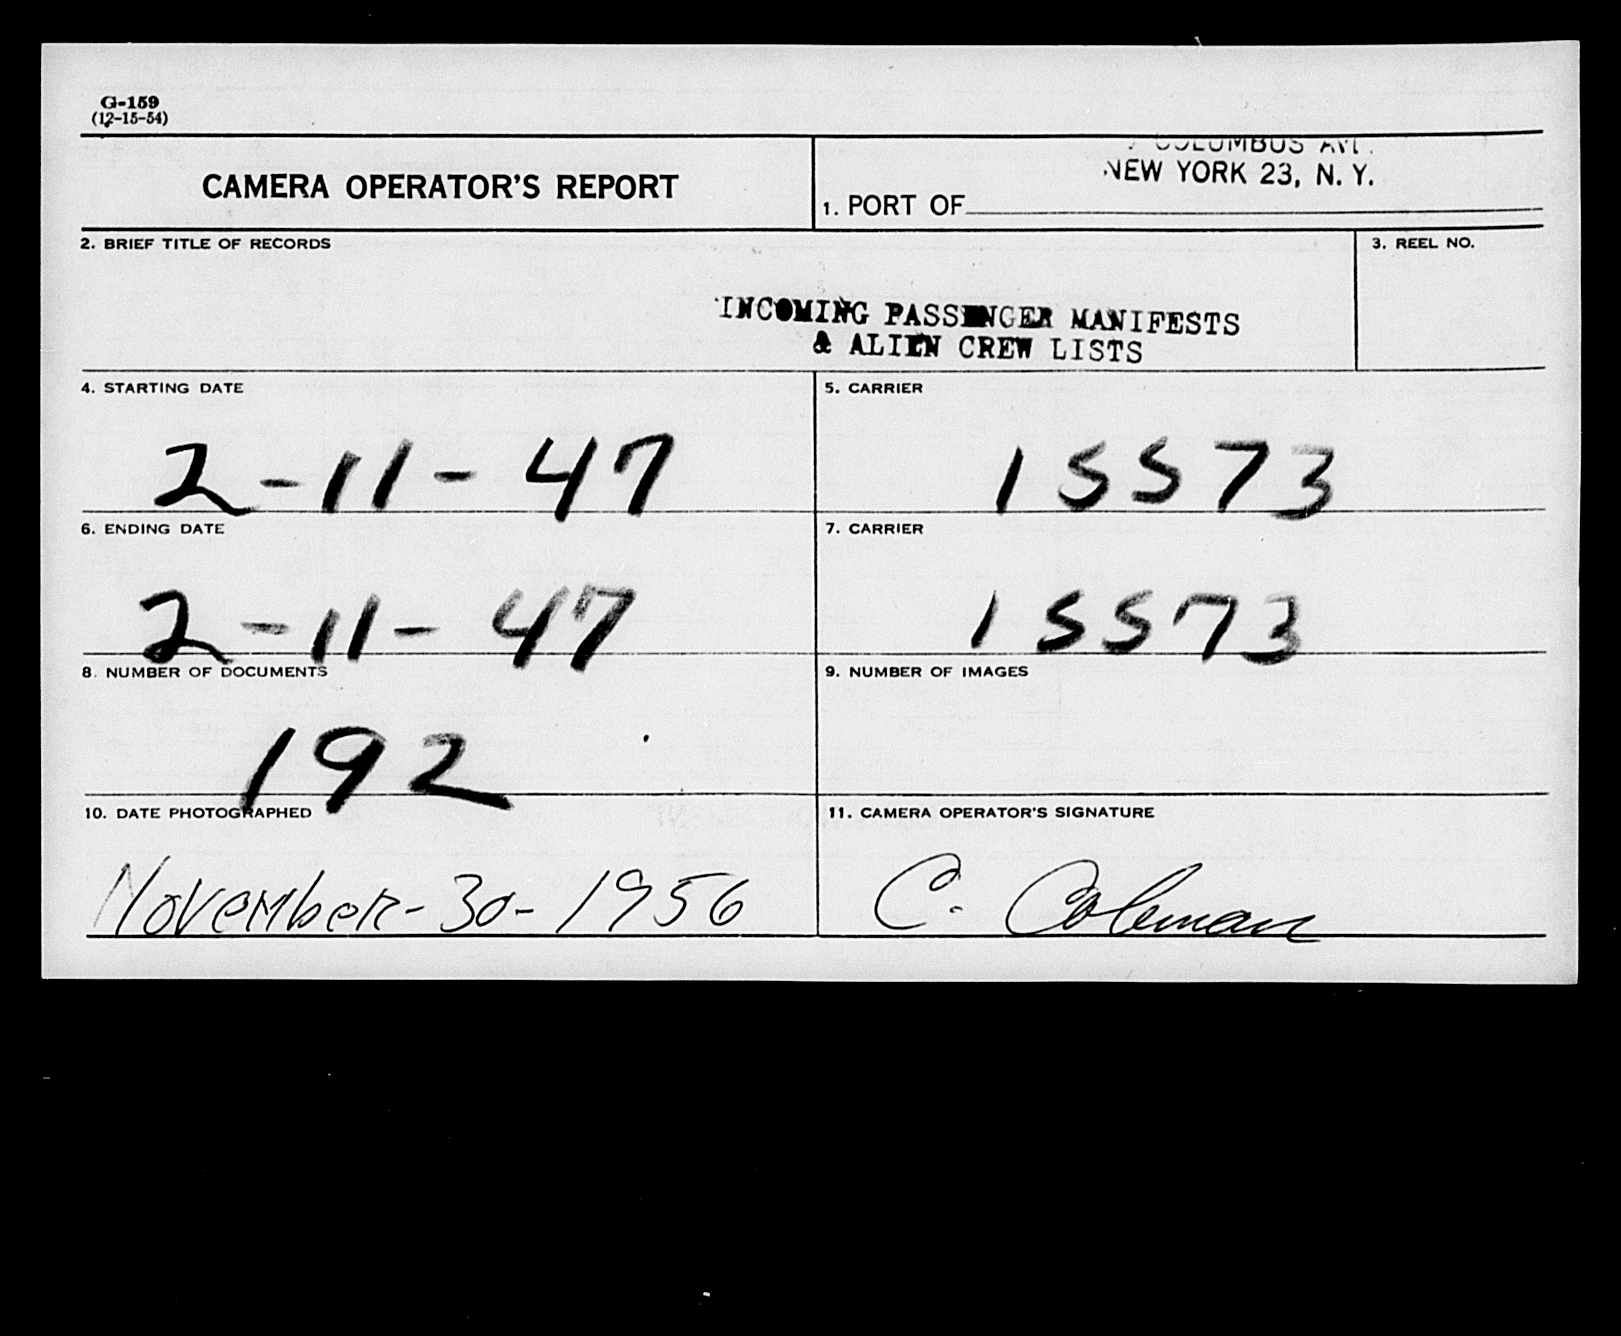 G-159
(12-15-54)
CAMERA OPERATOR'S REPORT
COLUMBUS AVE.
NEW YORK 23, N. Y.
1. PORT OF
2. BRIEF TITLE OF RECORDS
3. REEL NO.
INCOMING PASSENGER MANIFESTS
& ALIEN CREW LISTS
4. STARTING DATE
5. CARRIER
2-11-47
15573
6. ENDING DATE
7. CARRIER
2-11-47
15573
8. NUMBER OF DOCUMENTS
9. NUMBER OF IMAGES
192
10. DATE PHOTOGRAPHED
11. CAMERA OPERATOR'S SIGNATURE
November-30-1956
C. Coleman